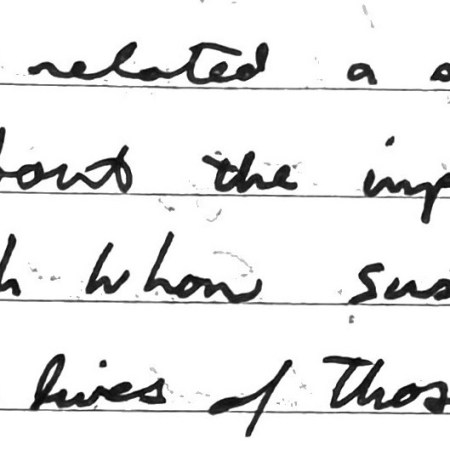 related a
bout the imp
h whom sus
lives of Thos